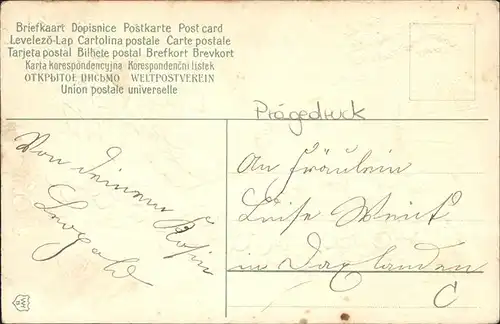 Briefkaart Dopisnice Postkarte Post card
Levelező-Lap Cartolina postale Carte postale
Tarjeta postal Bilhete postal Brefkort Brevkort
Karta korespondencyjna Korespondenční listek
ОТКРЫТОЕ ПИСЬМО WELTPOSTVEREIN
Union postale universelle
Prägedruck
Von Deinem
Leopold
An Fräulein
Luise
in Daxlanden
C